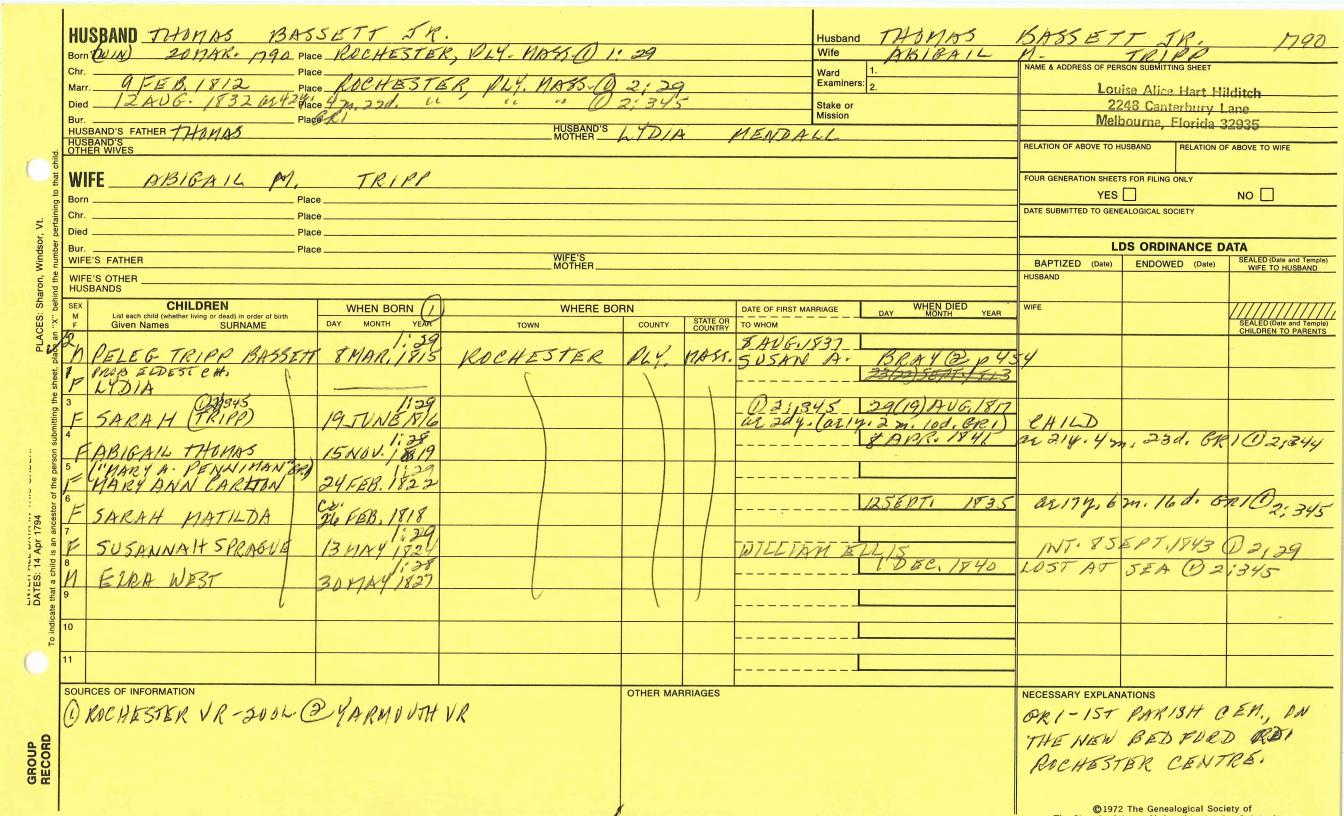 HUSBAND THOMAS BASSETT JR.
Born (TWIN) 20 MAR. 1790 Place ROCHESTER, PLY. MASS. ① 1: 29
Chr. Place
Marr. 9 FEB. 1812 Place ROCHESTER, PLY. MASS. ① 2: 29
Died 12 AUG. 1832 ae 42y, Place 4m. 22d. " " " ① 2:345
Bur. Place GR1
HUSBAND'S FATHER THOMAS HUSBAND'S MOTHER LYDIA MENDALL
HUSBAND'S OTHER WIVES
WIFE ABIGAIL M. TRIPP
Born Place
Chr. Place
Died Place
Bur. Place
WIFE'S FATHER WIFE'S MOTHER
WIFE'S OTHER HUSBANDS
Husband THOMAS BASSETT JR. 1790
Wife ABIGAIL M. TRIPP
Ward Examiners: 1.
2.
Stake or Mission
NAME & ADDRESS OF PERSON SUBMITTING SHEET
Louise Alice Hart Hilditch
2248 Canterbury Lane
Melbourne, Florida 32935
RELATION OF ABOVE TO HUSBAND RELATION OF ABOVE TO WIFE
FOUR GENERATION SHEETS FOR FILING ONLY
YES NO
DATE SUBMITTED TO GENEALOGICAL SOCIETY
LDS ORDINANCE DATA
BAPTIZED (Date) ENDOWED (Date) SEALED (Date and Temple) WIFE TO HUSBAND
HUSBAND
WIFE
SEALED (Date and Temple) CHILDREN TO PARENTS
SEX M F
CHILDREN
List each child (whether living or dead) in order of birth
Given Names SURNAME
WHEN BORN ①
DAY MONTH YEAR
WHERE BORN
TOWN COUNTY STATE OR COUNTRY
DATE OF FIRST MARRIAGE
TO WHOM
WHEN DIED
DAY MONTH YEAR
1:29 8 AUG. 1837
M PELEG TRIPP BASSETT 8 MAR. 1815 ROCHESTER PLY. MASS. SUSAN A. BRAY ② p 454
PROB ELDEST CH.
F LYDIA
3 ① 2:345 1:29 ① 2:345 29(19) AUG. 1817
F SARAH (TRIPP) 19 JUNE 1816 ae 2dy. (ae 1y. 2 m. 10d. GR1) CHILD
4 1:28 8 APR. 1841 ae 21y. 4m, 23d. GR1 ① 2:344
F ABIGAIL THOMAS 15 NOV. 1819
5 ("MARY A. PENNIMAN" GR1) 1:29
F MARY ANN CARLTON 24 FEB. 1822
6 12 SEPT. 1835 ae 17y, 6m. 16d. GR1 ① 2:345
F SARAH MATILDA 26 FEB. 1818
7 1:29
F SUSANNAH SPRAGUE 13 MAY 1824 WILLIAM ELLIS INT. 8 SEPT. 1843 ① 2;29
8 1:28 1 DEC. 1840 LOST AT SEA ① 2:345
M EZRA WEST 30 MAY 1827
9
10
11
SOURCES OF INFORMATION
① ROCHESTER VR-200L ② YARMOUTH VR
OTHER MARRIAGES
NECESSARY EXPLANATIONS
GR1-1ST PARISH CEM., ON
THE NEW BEDFORD RD.
ROCHESTER CENTRE.
©1972 The Genealogical Society of
PLACES: Sharon, Windsor, Vt.
DATES: 14 Apr 1794
To indicate that a child is an ancestor of the person submitting the sheet, place an "X" behind the number pertaining to that child.
GROUP RECORD